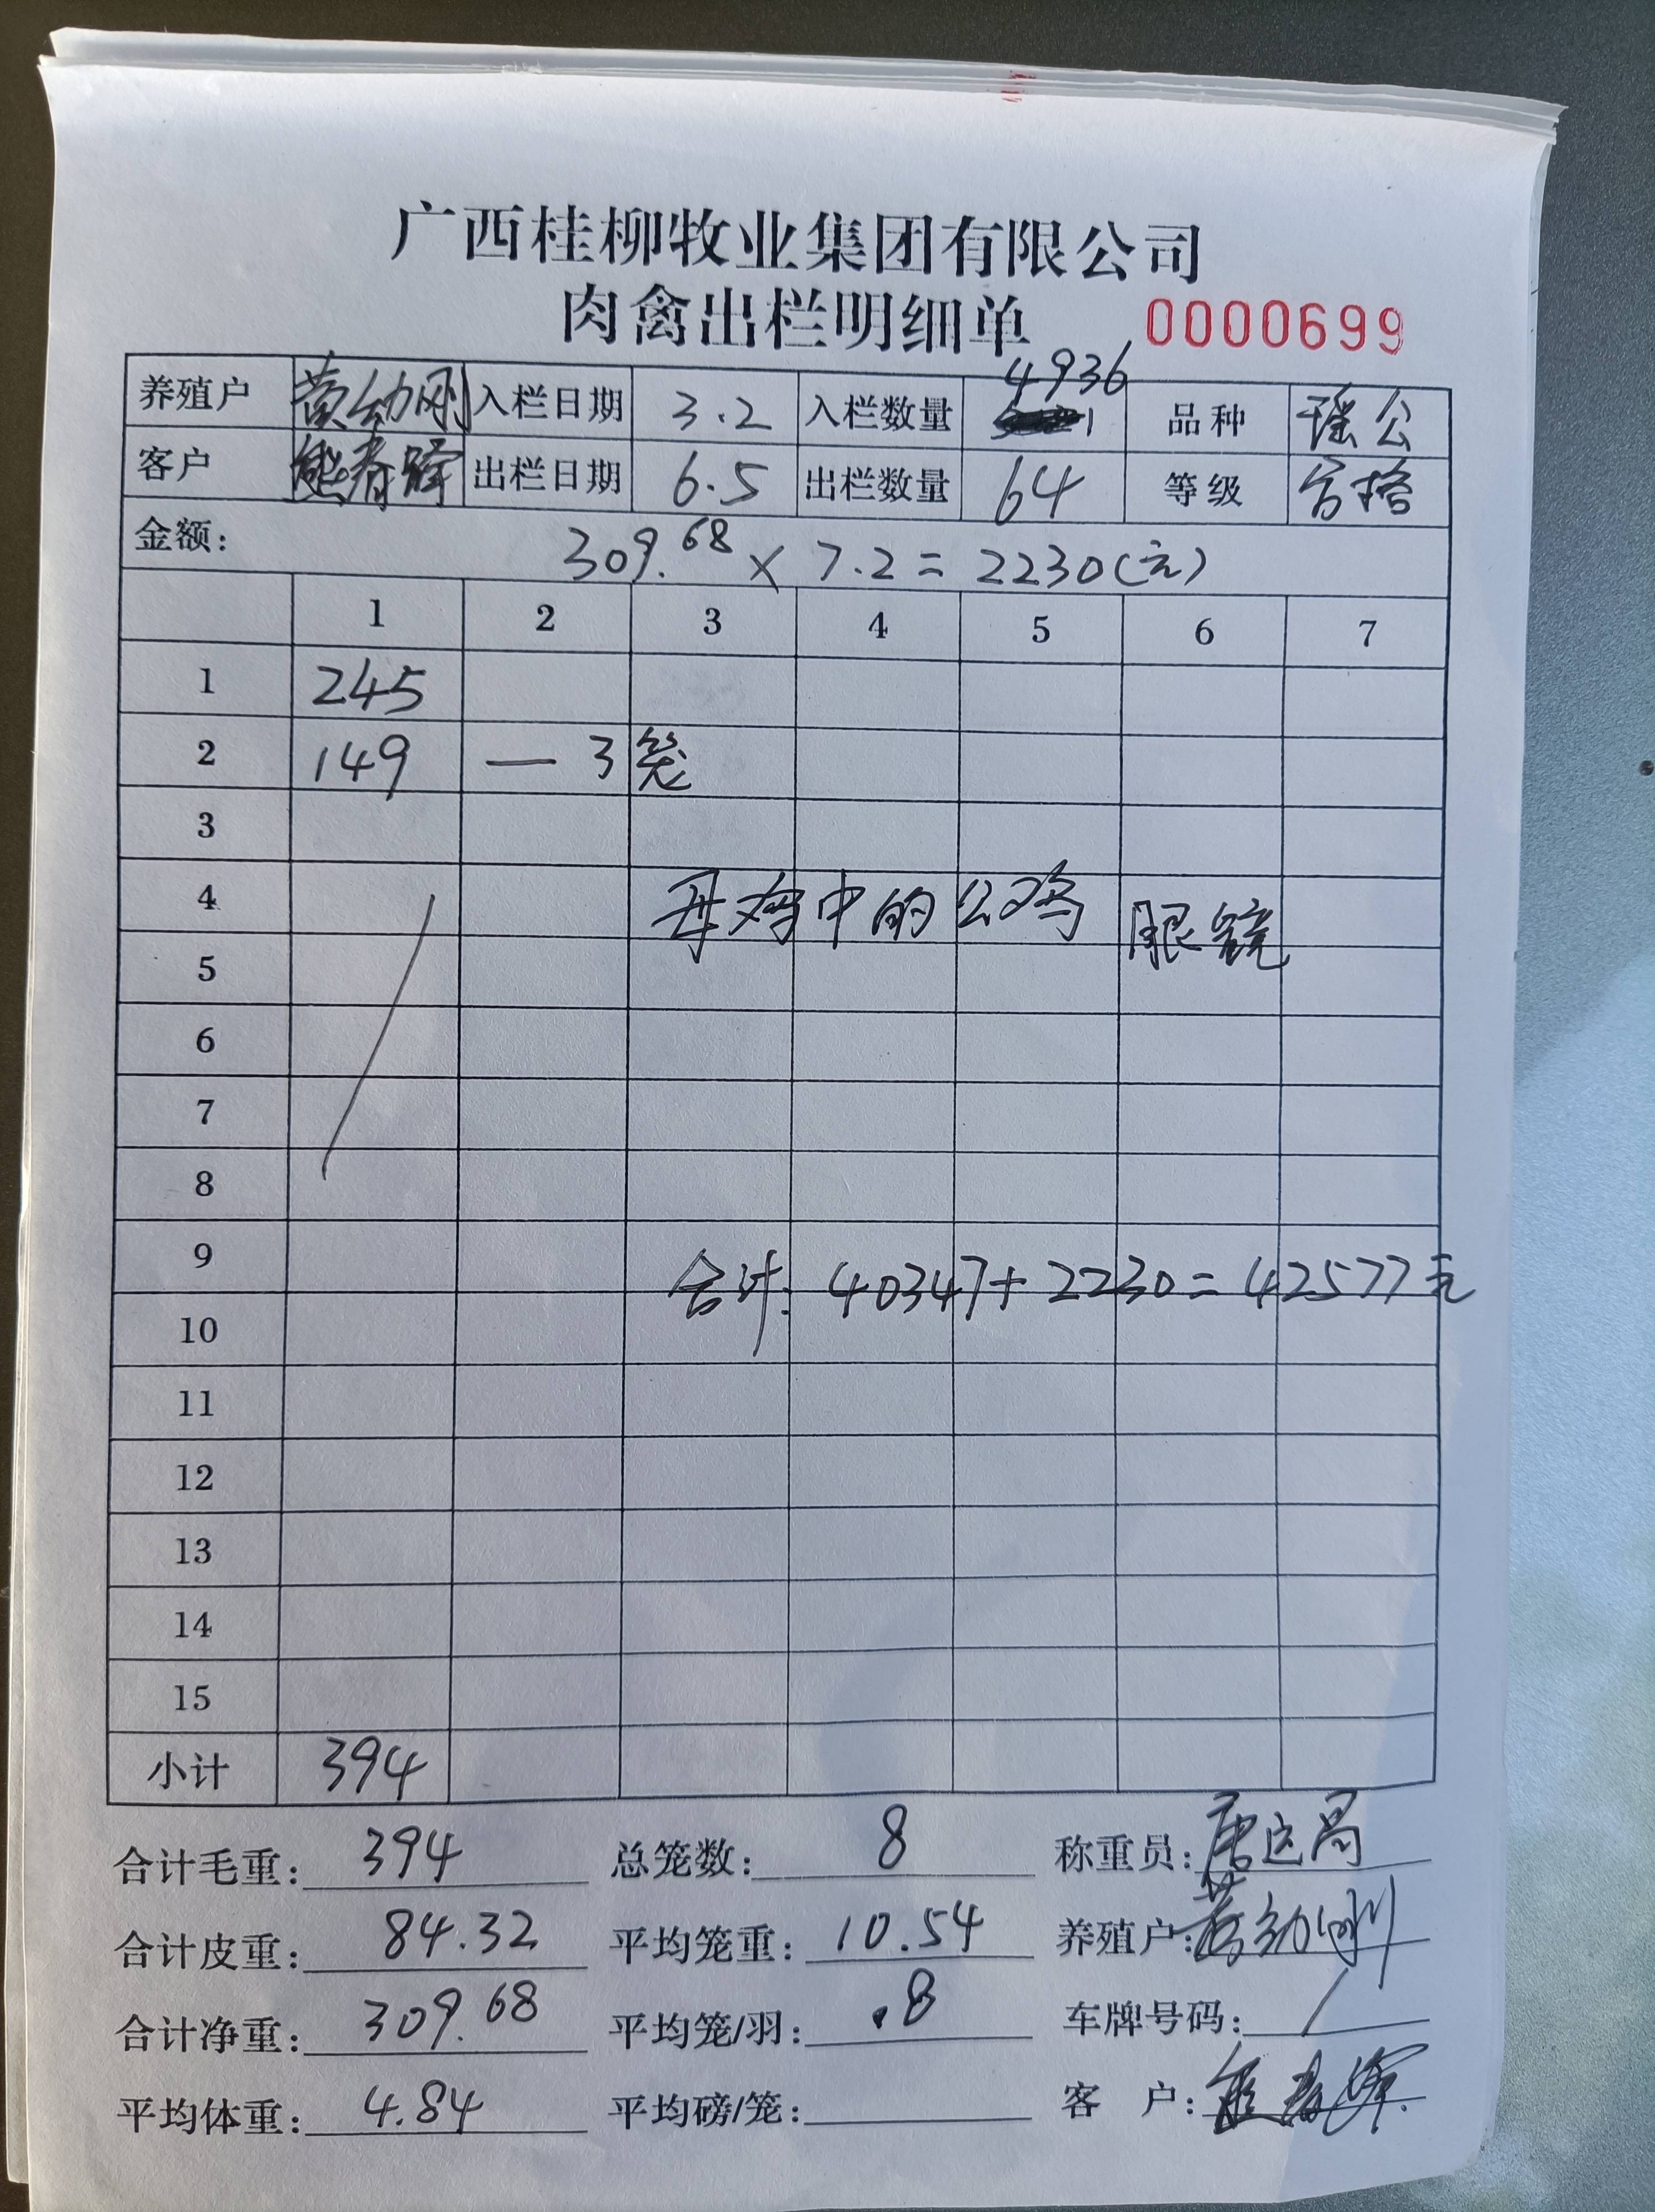 广西桂柳牧业集团有限公司
肉禽出栏明细单 0000699
养殖户 黄幼刚 入栏日期 3.2 入栏数量 4936 品种 瑶公
客户 熊春锋 出栏日期 6.5 出栏数量 64 等级 合格
金额: 309.68 × 7.2 = 2230(元)
1 2 3 4 5 6 7
1 245
2 149 — 3笼
3
4 母鸡中的公鸡 眼镜
5
6
7
8
9 合计: 40347+2230=42577元
10
11
12
13
14
15
小计 394
合计毛重: 394 总笼数: 8 称重员:
合计皮重: 84.32 平均笼重: 10.54 养殖户: 黄幼刚
合计净重: 309.68 平均笼/羽: .8 车牌号码: /
平均体重: 4.84 平均磅/笼: 客 户: